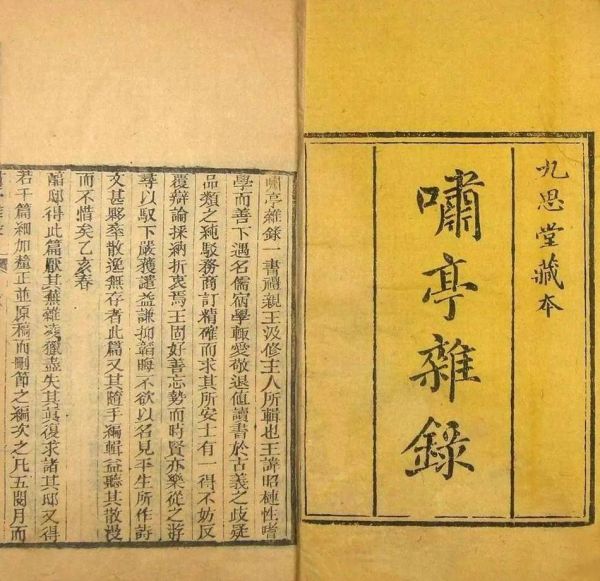 九思堂藏本
嘯亭雜錄
嘯亭雜錄一書禮親王汲修主人所輯也王諱昭槤性嗜
學而善下遇名儒宿學輒愛敬退值讀書於古義之歧疑
品類之純駁務商訂精確而求其所安士有一得不妨反
覆辯論採納折衷焉王固好善忘勢而時賢亦樂從之游
尋以馭下嚴獲譴益謙抑韜晦不欲以名見平生所作詩
文甚夥率散逸無存者此篇又其隨手編輯益聽其散漫
而不惜矣乙亥春
邸得此篇厭其蕪雜凌獵盡失其真復求諸其邸又得
若干篇細加釐正並原稿而刪節之編次之凡五閱月而